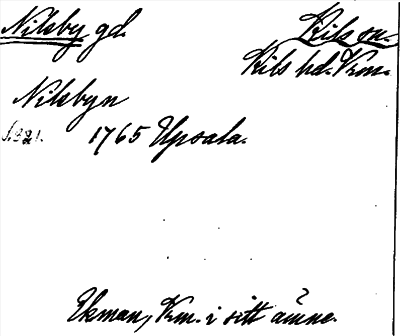 Nilsby gd.
Kils sn.
Kils hd. Vrm.
Nilsbyn
S. 321. 1765 Upsala.
Ekman, Vrm. i sitt ämne.